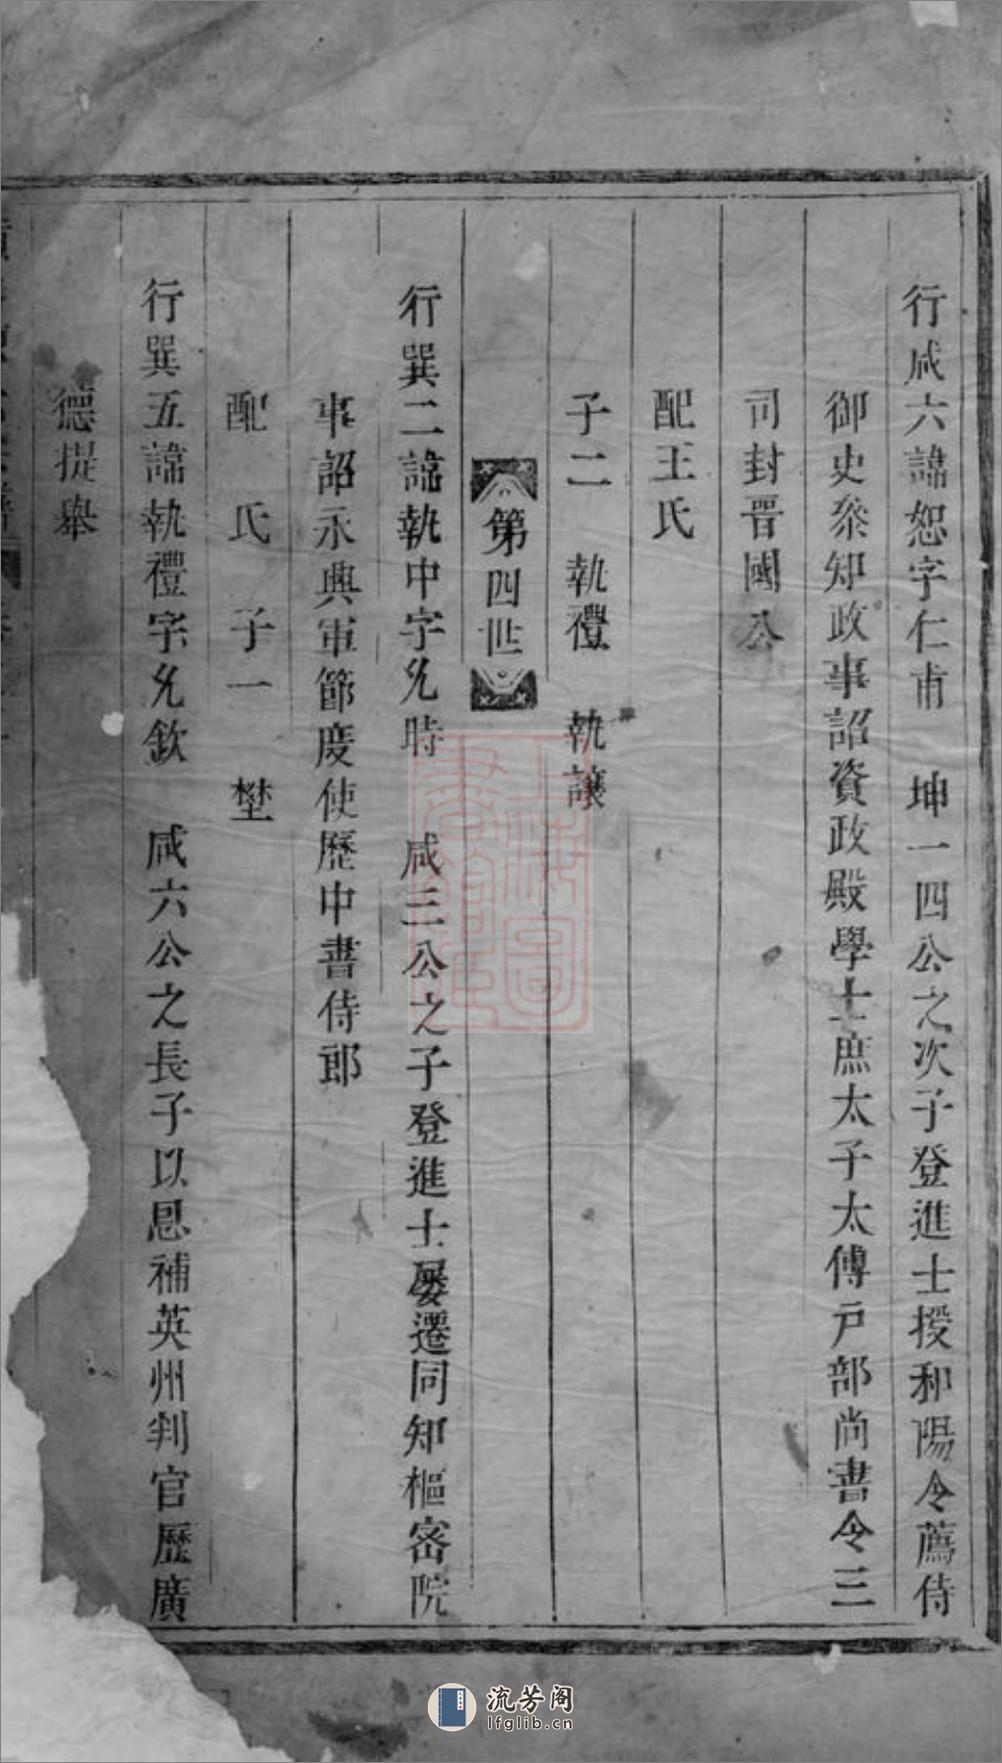 行咸六諱恕字仁甫　坤一四公之次子登進士授和陽令薦侍
御史叅知政事詔資政殿學士庶太子太傅戸部尚書令三
司封晋國公
配王氏
子二　執禮　執讓
第四世
行巽二諱執中字允時　咸三公之子登進士屡遷同知樞密院
事詔永興軍節度使歷中書侍郎
配　氏　子一　埜
行巽五諱執禮字允欽　咸六公之長子以恩補英州判官歷廣
德提舉
上海圖書館藏
流芳阁
lfglib.cn